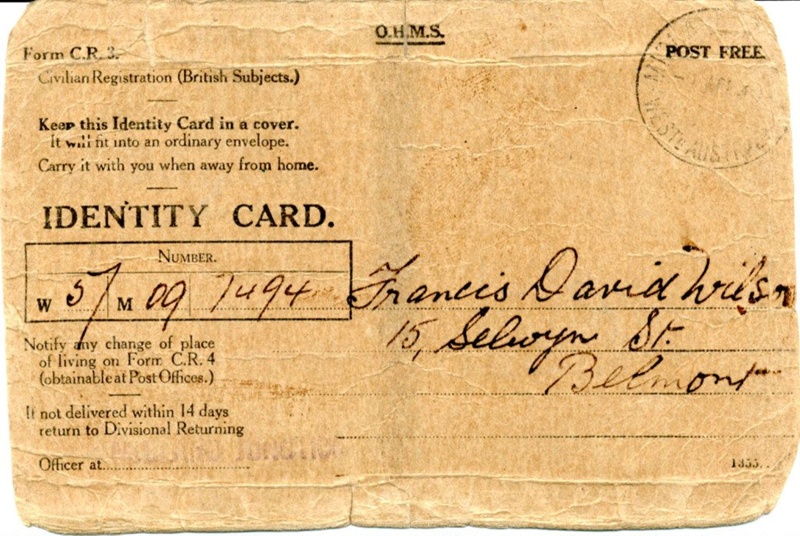 O.H.M.S.
Form C.R. 3.
POST FREE.
Civilian Registration (British Subjects.)
Keep this Identity Card in a cover.
It will fit into an ordinary envelope.
Carry it with you when away from home.
WEST AUST
IDENTITY CARD.
NUMBER.
W 5/ M 09 7494
Francis David Wilson
15, Selwyn St.
Belmont
Notify any change of place
of living on Form C.R. 4
(obtainable at Post Offices.)
If not delivered within 14 days
return to Divisional Returning
Officer at
1355.